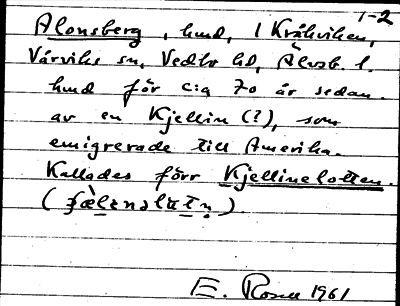 1-2
Alonsberg, hmd, i Kråkviken,
Värviks sn, Vedbo hd, Älvsb. l.
hmd för cia 70 år sedan.
av en Kjellin (?), som
emigrerade till Amerika.
Kallades förr Kjellinelotten.
E. Rosell 1961